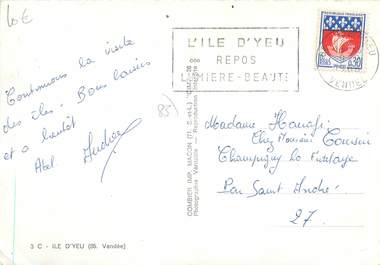 10€
L'ILE D'YEU
REPOS
LUMIERE-BEAUTÉ
REPUBLIQUE FRANÇAISE
0,30
PARIS
VENDEE
85)
Continuons la visite
des îles. Bons baisers
et à bientôt
Abel. Andrée
COMBIER IMP. MACON (71. S.-et-L.) "CIM"
Photographie Véritable - Reproduction
Madame
Chez Monsieur Cousin
Champigny la Futelaye
Par Saint André
27.
3 C - ILE D'YEU (85. Vendée)